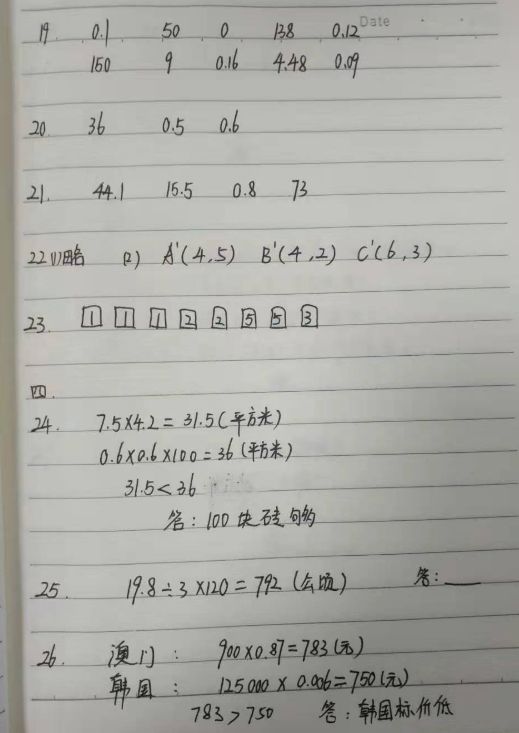 Date
19. 0.1 50 0 138 0.12
150 9 0.16 4.48 0.09
20 36 0.5 0.6
21. 44.1 15.5 0.8 73
22 (1)略 (2) A'(4,5) B'(4,2) C'(6,3)
23. 1 1 1 2 2 5 5 3
四.
24. 7.5×4.2=31.5(平方米)
0.6×0.6×100=36(平方米)
31.5<36
答:100块砖够
25. 19.8÷3×120=792(公顷) 答:
26. 澳门: 900×0.87=783(元)
韩国: 125000×0.006=750(元)
783>750 答:韩国标价低